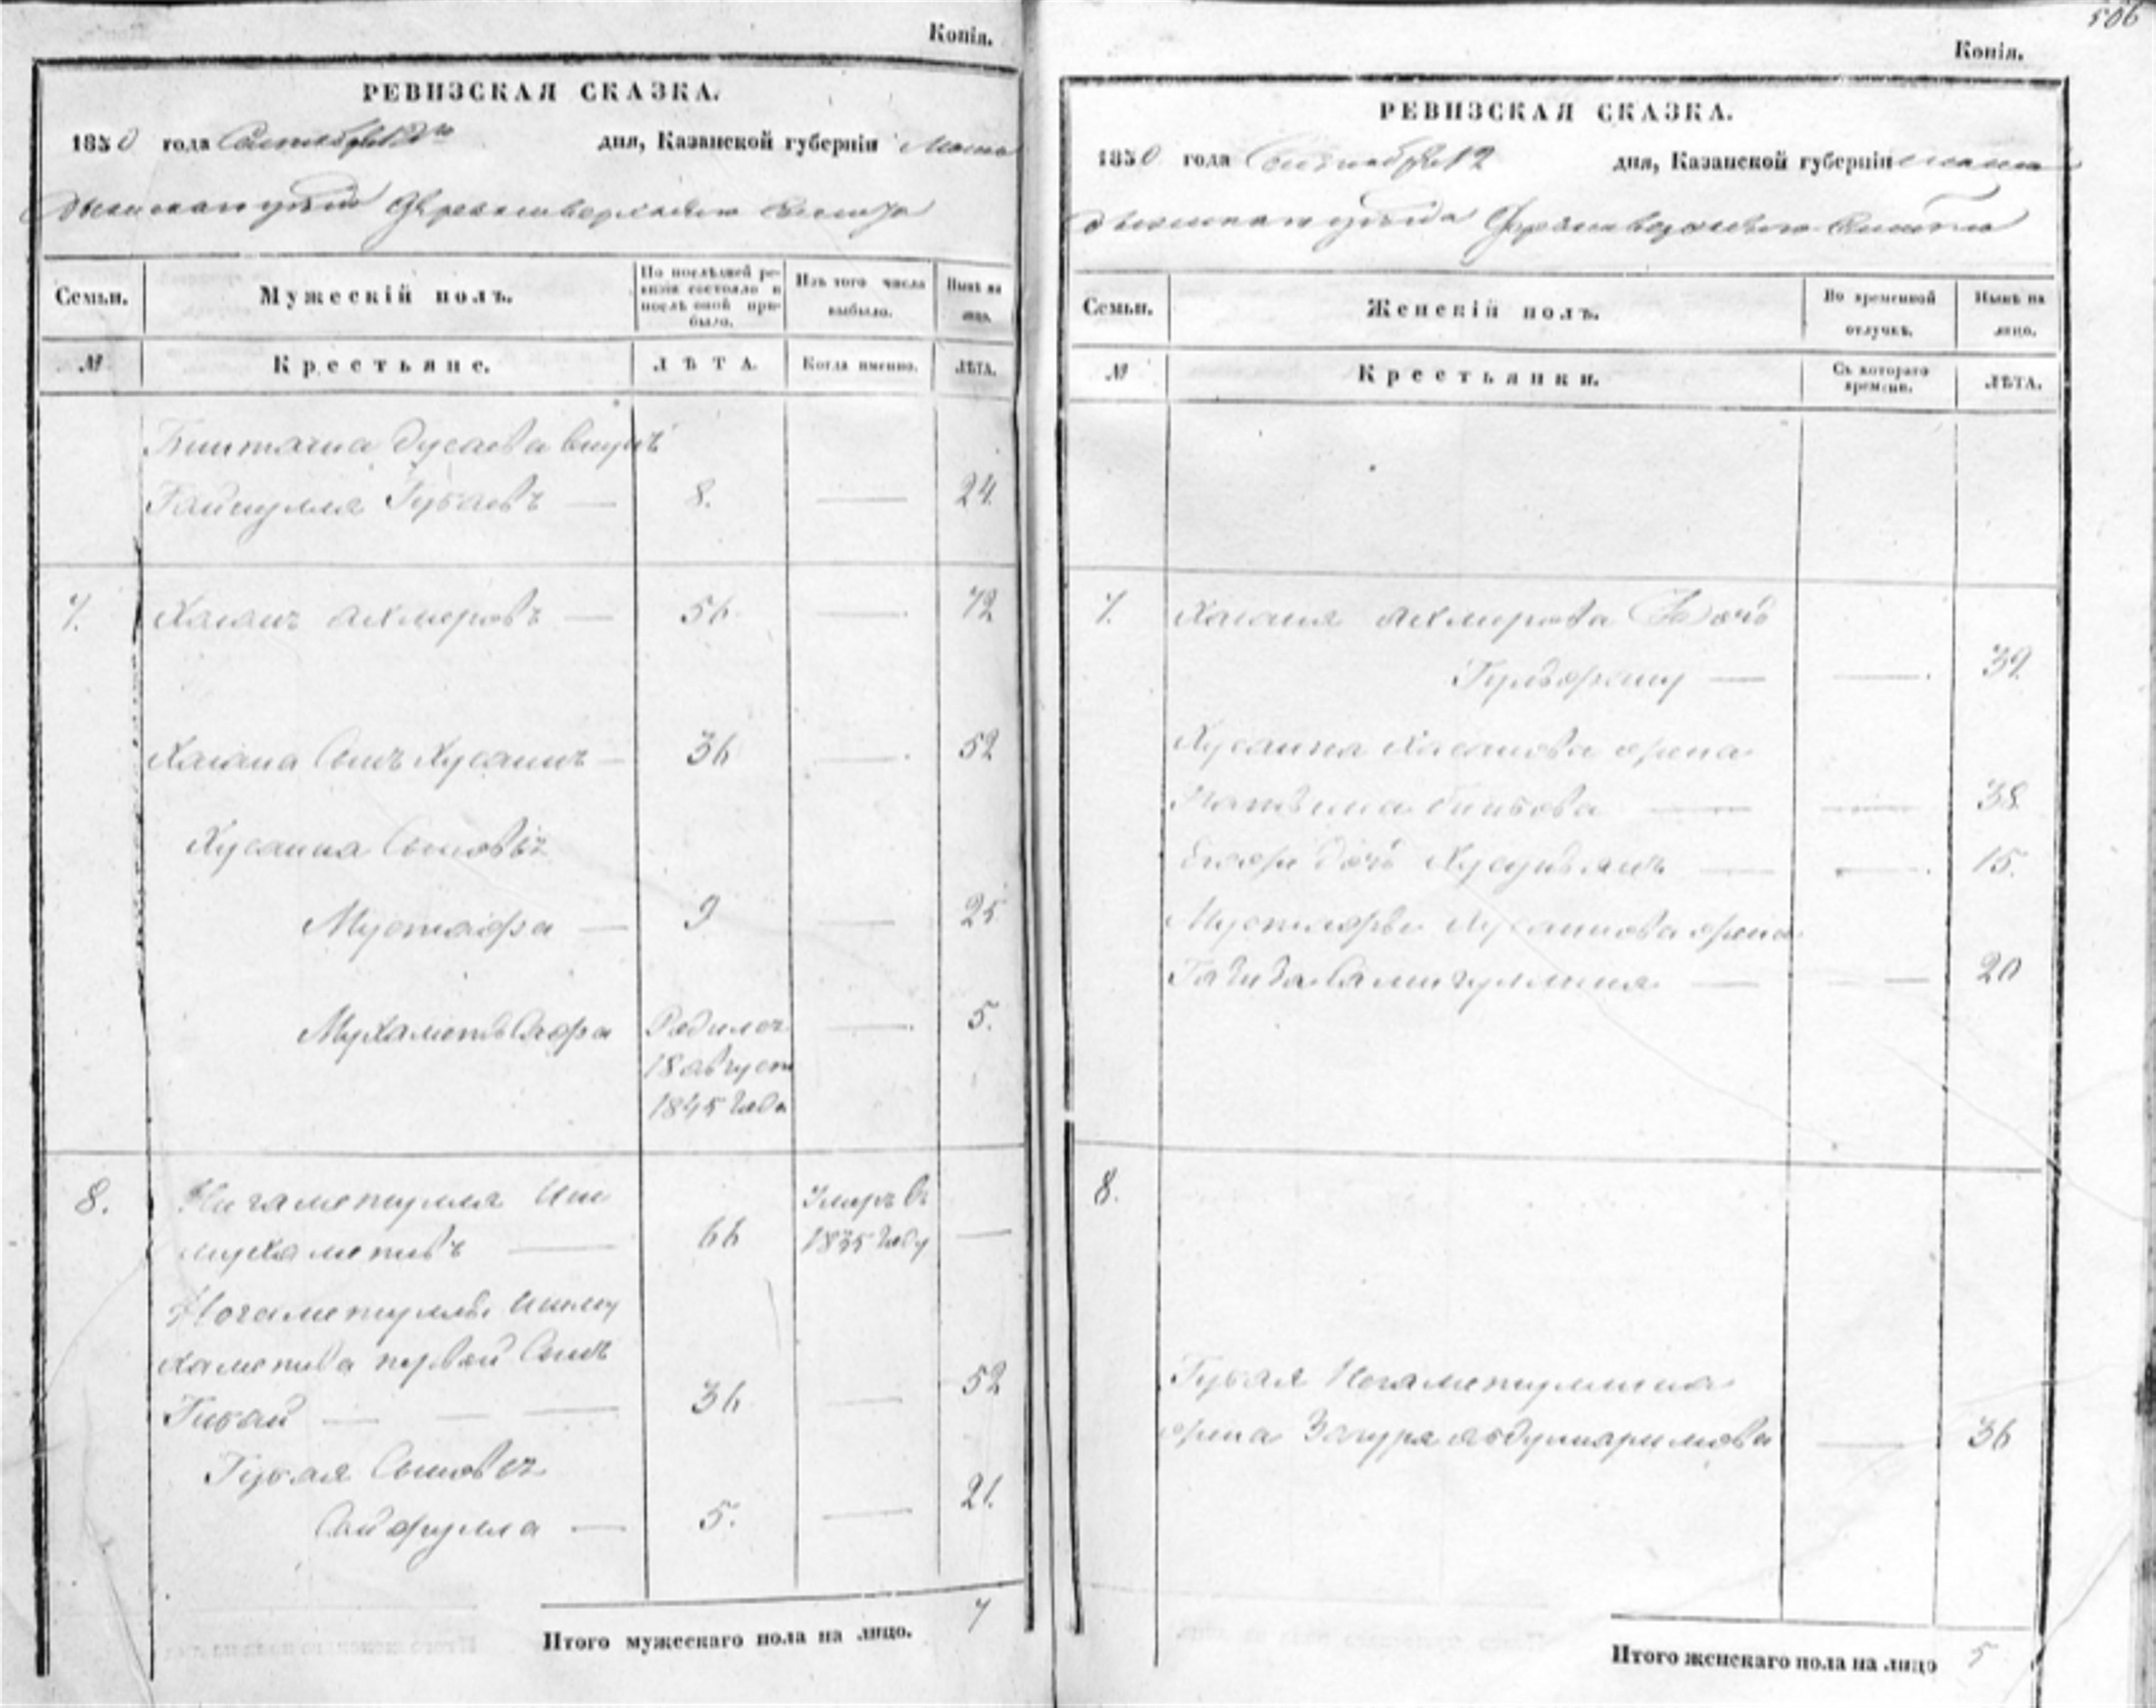 Копія.
РЕВИЗСКАЯ СКАЗКА.
1850 года Сентября 12 дня, Казанской губерніи Мама
дышскаго уѣзда Деревни верхняго
Семьи. Мужескій полъ. По послѣдней ре-
визіи состояло и
послѣ оной при-
было. Изъ того числа
выбыло. Нынѣ на
лицо.
№ Крестьяне. ЛѢТА. Когда именно. ЛѢТА.
Бикташa Дусаева внукъ
Гайнулла Губаевъ — 8. — 24
7. Хасанъ Ахмеровъ — 56 — 72
Хасана Сынъ Хусаинъ — 36 — 52
Хусаина Сыновья
Мустафа — 9 — 25
Мухаметъ Сафа Родился — 5.
18 август
1845 года
8. Нигаметулла Иш
мухаметевъ — 66 Умеръ въ
1835 году —
Ногаметуллы Ишму
хаметева первой Сынъ
Губай — 36 — 52
Губая Сыновья
Сайфулла — 5. — 21.
Итого мужескаго пола на лицо. 7
506
Копія.
РЕВИЗСКАЯ СКАЗКА.
1850 года Сентября 12 дня, Казанской губерніи мама
дышскаго уѣзда Деревни верхняго
Семьи. Женскій полъ. Во временной
отлучкѣ. Нынѣ на
лицо.
№ Крестьянки. Съ котораго
времени. ЛѢТА.
7. Хасана Ахмерова Дочь
— — 39
Хусаина Хасанова жена
— — 38
дочь — — 15.
Мустафы Хусаинова жена
— — 20
8.
Губая Ногаметуллина
жена Загура Абдулкаримова — 36
Итого женскаго пола на лицо 5